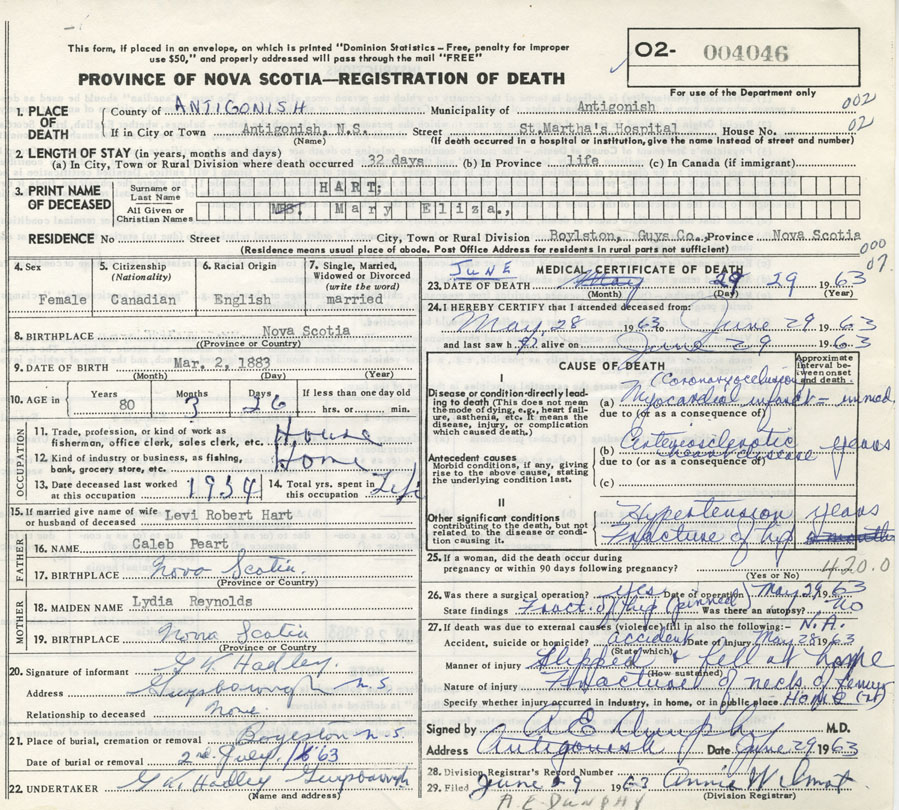 This form, if placed in an envelope, on which is printed "Dominion Statistics – Free, penalty for improper
use $50," and properly addressed will pass through the mail "FREE"
O2- 004046
PROVINCE OF NOVA SCOTIA—REGISTRATION OF DEATH
For use of the Department only
1. PLACE OF DEATH
County of ANTIGONISH Municipality of Antigonish 002
If in City or Town Antigonish, N.S. Street St.Martha's Hospital House No. 02
(Name) (If death occurred in a hospital or institution, give the name instead of street and number)
2. LENGTH OF STAY (in years, months and days)
(a) In City, Town or Rural Division where death occurred 32 days (b) In Province life (c) In Canada (if immigrant)
3. PRINT NAME OF DECEASED
Surname or Last Name HART;
All Given or Christian Names Mrs. Mary Eliza.,
RESIDENCE No Street City, Town or Rural Division Boylston, Guys Co., Province Nova Scotia
(Residence means usual place of abode. Post Office Address for residents in rural parts not sufficient)
000
07
4. Sex Female
5. Citizenship (Nationality) Canadian
6. Racial Origin English
7. Single, Married, Widowed or Divorced (write the word) married
8. BIRTHPLACE Nova Scotia
(Province or Country)
9. DATE OF BIRTH Mar. 2, 1883
(Month) (Day) (Year)
10. AGE in Years 80 Months 3 Days 26 If less than one day old
hrs. or min.
OCCUPATION
11. Trade, profession, or kind of work as fisherman, office clerk, sales clerk, etc. House
12. Kind of industry or business, as fishing, bank, grocery store, etc. Home
13. Date deceased last worked at this occupation 1954
14. Total yrs. spent in this occupation Life
15. If married give name of wife or husband of deceased Levi Robert Hart
FATHER
16. NAME Caleb Peart
17. BIRTHPLACE Nova Scotia.
(Province or Country)
MOTHER
18. MAIDEN NAME Lydia Reynolds
19. BIRTHPLACE Nova Scotia
(Province or Country)
20. Signature of informant G W Hadley.
Address Guysborough N.S.
Relationship to deceased None.
21. Place of burial, cremation or removal Boylston N.S.
Date of burial or removal 2nd July 1963
22. UNDERTAKER G W. Hadley Guysborough
(Name and address)
MEDICAL CERTIFICATE OF DEATH
23. DATE OF DEATH JUNE May 29 29 1963
(Month) (Day) (Year)
24. I HEREBY CERTIFY that I attended deceased from:
May 28 1963 to June 29 1963
and last saw h alive on June 29 1963
CAUSE OF DEATH
Approximate interval between onset and death
I
Disease or condition directly leading to death (This does not mean the mode of dying, e.g., heart failure, asthenia, etc. It means the disease, injury, or complication which caused death.)
(Coronary occlusion)
(a) Myocardial infarct – immed.
due to (or as a consequence of)
Antecedent causes
Morbid conditions, if any, giving rise to the above cause, stating the underlying condition last.
(b) Arteriosclerotic heart disease years
due to (or as a consequence of)
(c)
II
Other significant conditions
contributing to the death, but not related to the disease or condition causing it.
Hypertension years
Fracture of hip
25. If a woman, did the death occur during
pregnancy or within 90 days following pregnancy?
(Yes or No)
420.0
26. Was there a surgical operation? Yes Date of operation May 29 1963
State findings Fract. of hip (pinned) Was there an autopsy? no
27. If death was due to external causes (violence) fill in also the following:- N.A.
Accident, suicide or homicide? accident Date of injury May 28 1963
(State which)
Manner of injury Slipped & fell at home
(How sustained)
Nature of injury Fracture of neck of femur
Specify whether injury occurred in industry, in home, or in public place. Home
Signed by A E Dunphy M.D.
Address Antigonish Date June 29 1963
28. Division Registrar's Record Number
29. Filed June 29 1963 Annie W
(Division Registrar)
A.E. DUNPHY